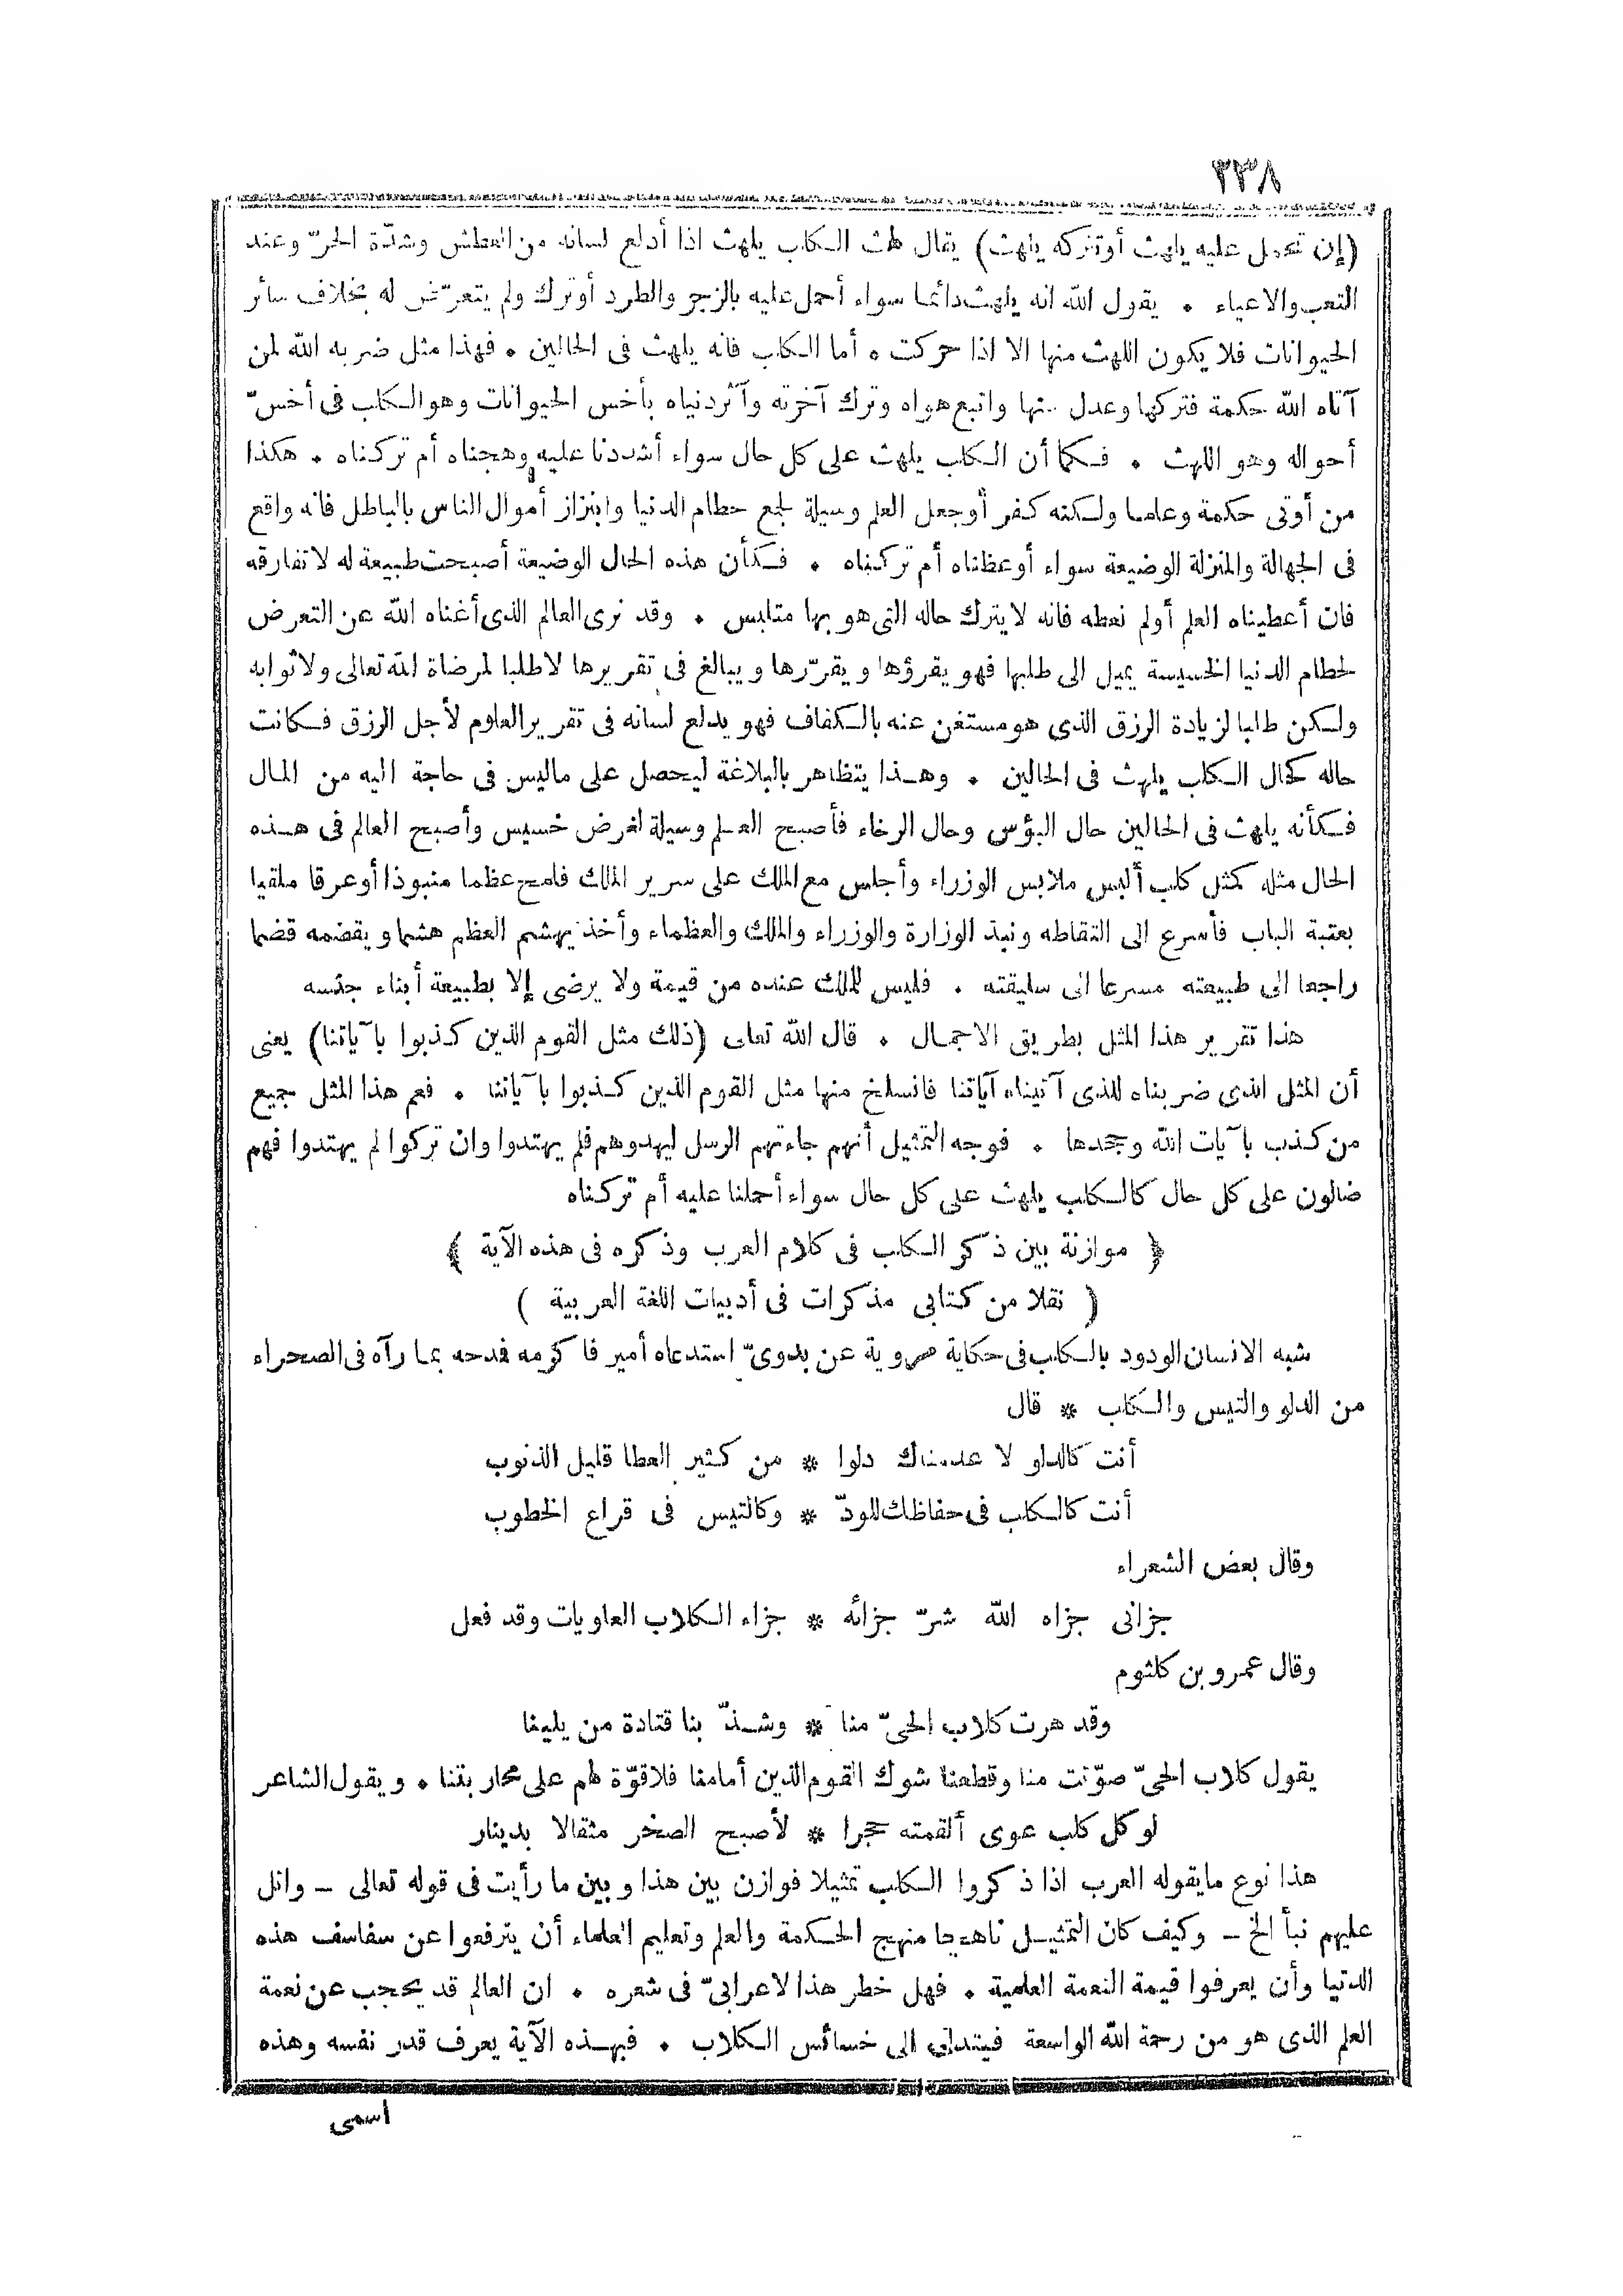 ٢٣٨
(إن تحمل عليه يلهث أوتتركه يلهث) يقال لهث الكلب يلهث اذا أدلع لسانه من العطش وشدّة الحرّ وعند
التعب والاعياء . يقول الله انه يلهث دائما سواء أحمل عليه بالزجر والطرد أوترك ولم يتعرّض له بخلاف سائر
الحيوانات فلا يكون اللهث منها الا اذا حركت . أما الكلب فانه يلهث فى الحالين . فهذا مثل ضربه الله لمن
آتاه الله حكمة فتركها وعدل عنها واتبع هواه وترك آخرته وآثر دنياه بأخس الحيوانات وهو الكلب فى أخسّ
أحواله وهو اللهث . فكما أن الكلب يلهث على كل حال سواء أشددنا عليه وهجناه أم تركناه . هكذا
من أوتى حكمة وعلما ولكنه كفر أوجعل العلم وسيلة لجمع حطام الدنيا وابتزاز أموال الناس بالباطل فانه واقع
فى الجهالة والمنزلة الوضيعة سواء أوعظناه أم تركناه . فكأن هذه الحال الوضيعة أصبحت طبيعة له لا تفارقه
فان أعطيناه العلم أولم نعطه فانه لايترك حاله التى هو بها متلبس . وقد نرى العالم الذى أغناه الله عن التعرض
لحطام الدنيا الخسيسة يميل الى طلبها فهو يقرؤها ويقرّرها ويبالغ فى تقريرها لاطلبا لمرضاة الله تعالى ولا ثوابه
ولكن طلبا لزيادة الرزق الذى هو مستغن عنه بالكفاف فهو يدلع لسانه فى تقرير العلوم لأجل الرزق فكانت
حاله كحال الكلب يلهث فى الحالين . وهذا يتظاهر بالبلاغة ليحصل على ماليس فى حاجة اليه من المال
فكأنه يلهث فى الحالين حال البؤس وحال الرخاء فأصبح العلم وسيلة لغرض خسيس وأصبح العالم فى هذه
الحال مثله كمثل كلب ألبس ملابس الوزراء وأجلس مع الملك على سرير الملك فلمح عظما منبوذا أوعرقا ملقيا
بعتبة الباب فأسرع الى التقاطه ونبذ الوزارة والوزراء والملك والعظماء وأخذ يهشم العظم هشما ويقضمه قضما
راجعا الى طبيعته مسرعا الى سليقته . فليس للملك عنده من قيمة ولا يرضى إلا بطبيعة أبناء جنسه
هذا تقرير هذا المثل بطريق الاجمال . قال الله تعالى (ذلك مثل القوم الذين كذبوا بآياتنا) يعنى
أن المثل الذى ضربناه للذى آتيناه آياتنا فانسلخ منها مثل القوم الذين كذبوا بآياتنا . فعم هذا المثل جميع
من كذب بآيات الله وجحدها . فوجه التمثيل أنهم جاءتهم الرسل ليهدوهم فلم يهتدوا وان تركوا لم يهتدوا فهم
ضالون على كل حال كالكلب يلهث على كل حال سواء أحملنا عليه أم تركناه
﴿ موازنة بين ذكر الكلب فى كلام العرب وذكره فى هذه الآية ﴾
( نقلا من كتابى مذكرات فى أدبيات اللغة العربية )
شبه الانسان الودود بالكلب فى حكاية مروية عن بدوىّ استدعاه أمير فاكرمه فمدحه بما رآه فى الصحراء
من الدلو والتيس والكلب * قال
أنت كالدلو لا عدمناك دلوا * من كثير العطا قليل الذنوب
أنت كالكلب فى حفاظك للودّ * وكالتيس فى قراع الخطوب
وقال بعض الشعراء
جزانى جزاه الله شرّ جزائه * جزاء الكلاب العاويات وقد فعل
وقال عمرو بن كلثوم
وقد هرت كلاب الحىّ منا * وشذّ بنا قتادة من يلينا
يقول كلاب الحىّ صوّتت منا وقطعنا شوك القوم الذين أمامنا فلا قوّة لهم على محاربتنا . ويقول الشاعر
لوكل كلب عوى ألقمته حجرا * لأصبح الصخر مثقالا بدينار
هذا نوع مايقوله العرب اذا ذكروا الكلب تمثيلا فوازن بين هذا وبين ما رأيت فى قوله تعالى - واتل
عليهم نبأ الخ - وكيف كان التمثيل ناهجا منهج الحكمة والعلم وتعليم العلماء أن يترفعوا عن سفاسف هذه
الدنيا وأن يعرفوا قيمة النعمة العلمية . فهل خطر هذا لاعرابىّ فى شعره . ان العالم قد يحجب عن نعمة
العلم الذى هو من رحمة الله الواسعة فيتدلى الى خسائس الكلاب . فبهذه الآية يعرف قدر نفسه وهذه
اسمى